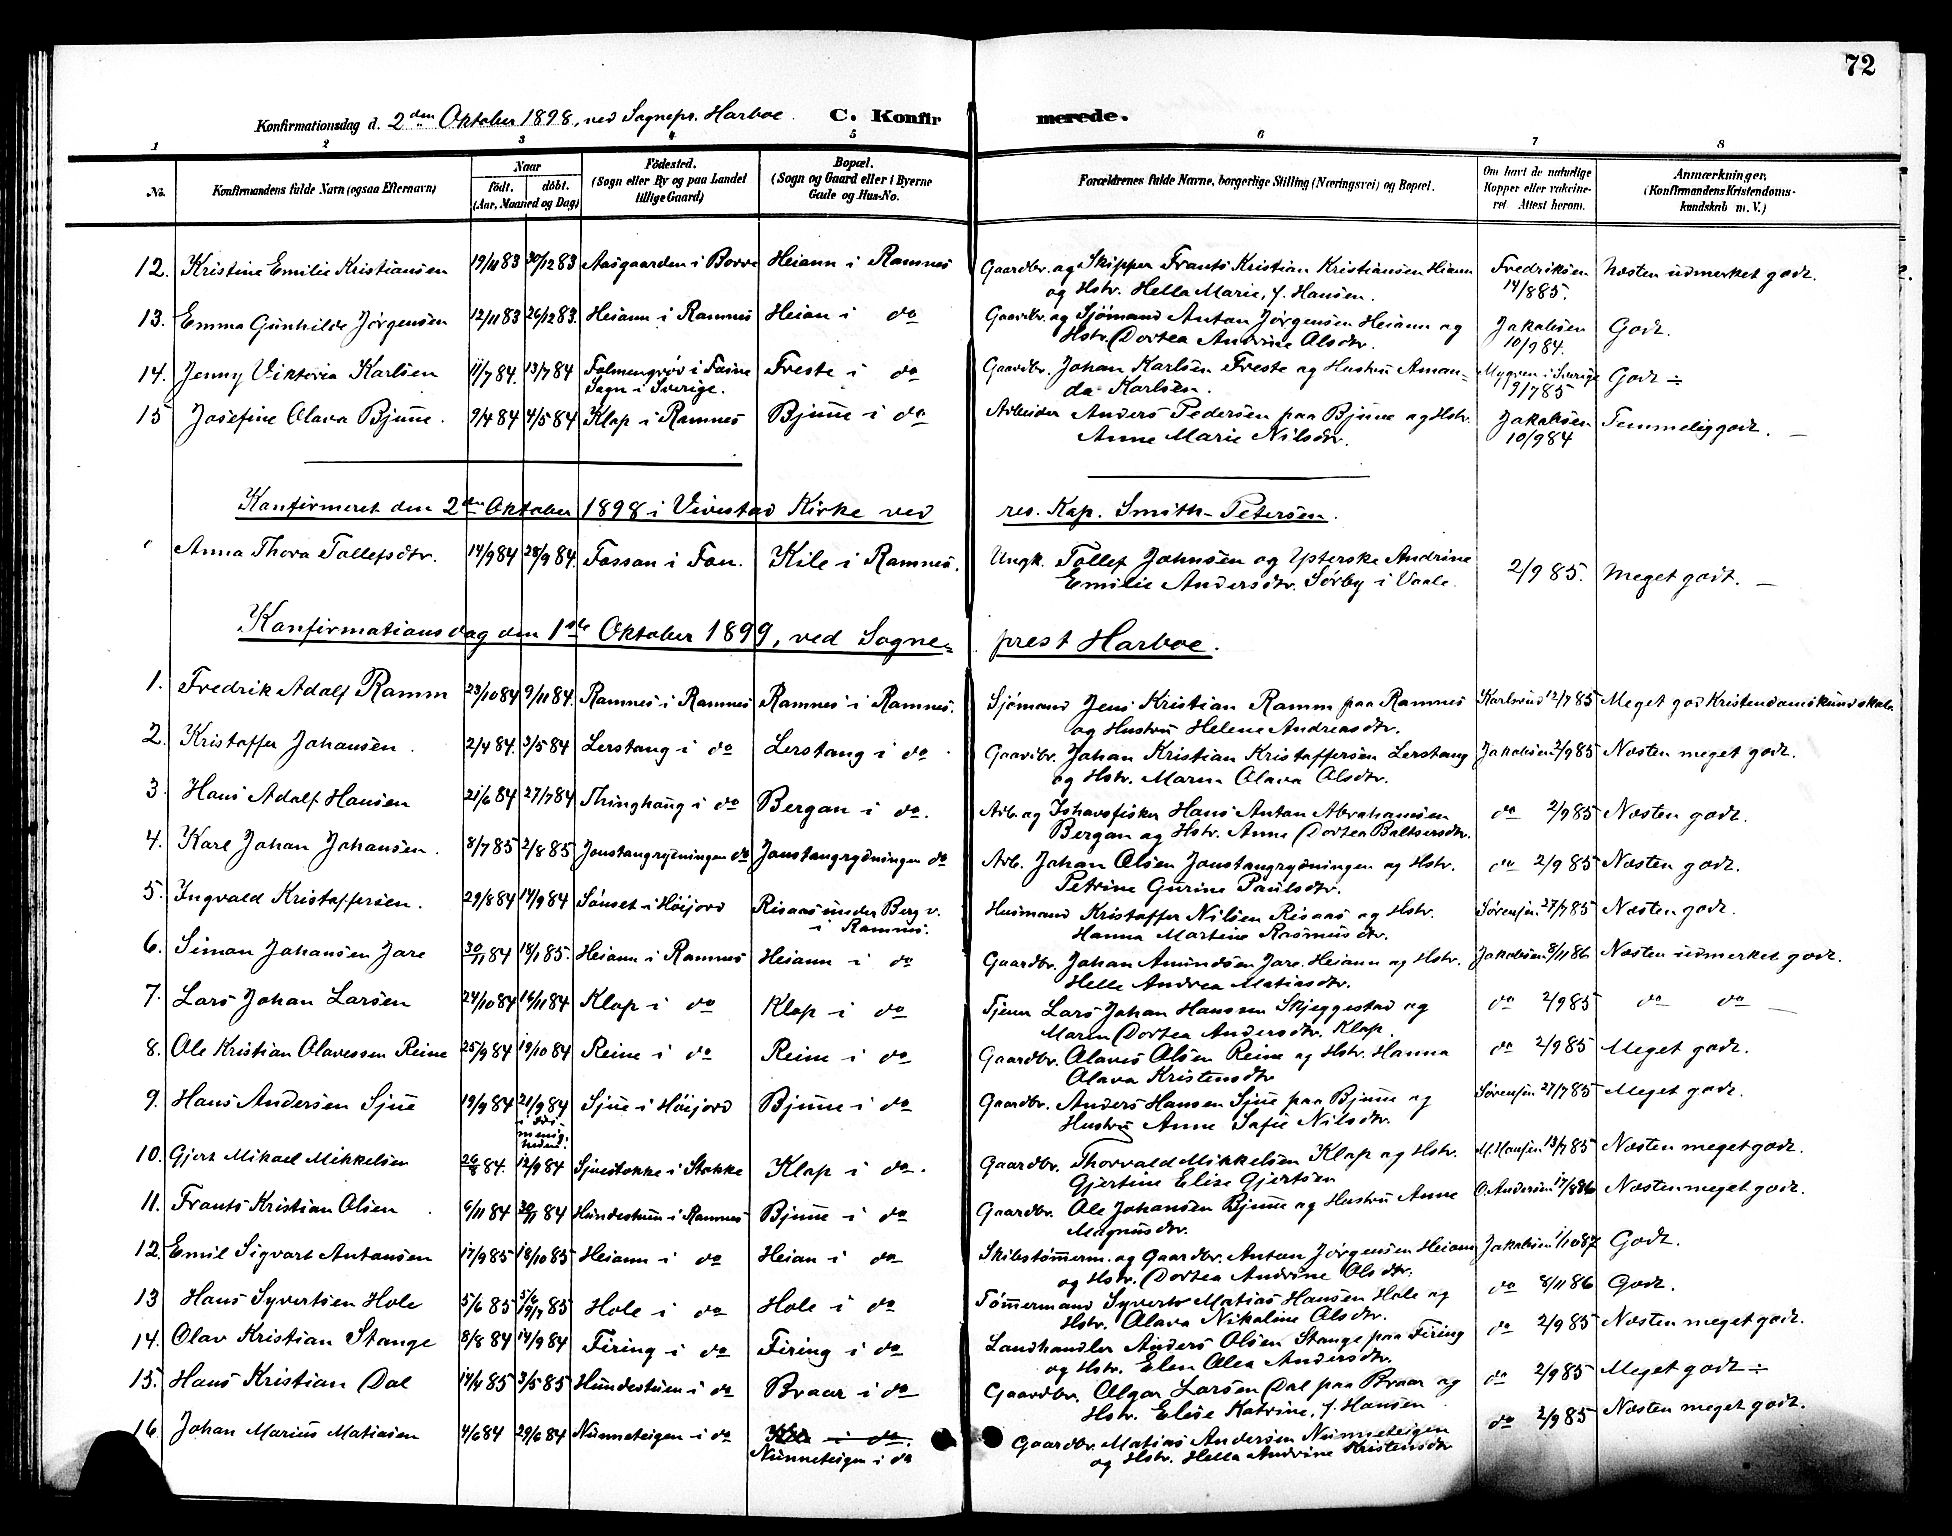 72
Konfirmationsdag d. 2den Oktober 1898, ved Sognepr. Harboe. C. Konfirmerede.
1 2 3 4 5 6 7 8
No. Konfirmandens fulde Navn (ogsaa Efternavn) Naar født. døbt. (Aar, Maaned og Dag) Fødested. (Sogn eller By og paa Landet tillige Gaard) Bopæl. (Sogn og Gaard eller i Byerne Gade og Hus-No. Forældrenes fulde Navne, borgerlige Stilling (Næringsvei) og Bopæl. Om havt de naturlige Kopper eller vakcineret Attest herom. Anmærkninger. (Konfirmandens Kristendomskundskab m. V.)
12. Kristine Emilie Kristiansen 19/11 83 30/12 83 Aasgaarden i Borre Heiann i Ramnes Gaardbr. og Skipper Frants Kristian Kristiansen Hiann Fredriksen Næsten udmerket godt.
og Hstr. Hella Marie, f. Hansen. 14/8 85.
13. Emma Gunhilde Jørgensen 12/11 83 26/12 83. Heiann i Ramnes Heian i do Gaardbr. og Sjømand Anton Jørgensen Heiann og Jakobsen Godt.
Hstr. Dortea Andrine Olsdtr. 10/9 84.
14. Jenny Viktoria Karlsen 11/7 84. 13/7 84 Folmengrøv i Fosine Freste i do Gaardbr. Johan Karlsen Freste og Hustru Aman- Mygren i Sverige Godt ÷
Sogn i Sverige. da Karlsen. 9/7 85
15 Josefine Olava Bjune. 9/4 84 4/5 84 Klop i Ramnes Bjune i do Arbeider Anders Pedersen paa Bjune og Hstr. Jakobsen Temmelig godt. —
Anne Marie Nilsdtr. 10/9 84
Konfirmeret den 2den Oktober 1898 i Vivestad Kirke ved res. Kap. Smith-Petersen.
Anna Thora Tollefsdtr. 14/9 84 28/9 84. Fossan i Fon. Kile i Ramnes. Ungk. Tollef Johnsen og Ypterske Andrine 2/9 85. Meget godt. —
Emilie Andersdtr. Sørby i Vaale.
Konfirmationsdag den 1ste Oktober 1899, ved Sogneprest Harboe.
1. Fredrik Adolf Ramm 23/10 84 9/11 84. Ramnes i Ramnes Ramnes i Ramnes. Sjømand Jens Kristian Ramm paa Ramnes Karlsrud 12/7 85 Meget god Kristendomskundskab.
og Hustru Helene Andreasdtr.
2. Kristoffer Johansen. 2/4 84. 3/5 84 Lerstang i do Lerstang i do Gaardbr. Johan Kristian Kristoffersen Lerstang Jakobsen 2/9 85 Næsten meget godt.
og Hstr. Maren Olava Olsdtr.
3. Hans Adolf Hansen 21/6 84 27/7 84 Thinghaug i do Bergan i do. Arb. og Ishavsfisker Hans Anton Abrahamsen do 2/9 85 Næsten godt.
Bergan og Hstr. Anne Dortea Baltsersdtr.
4. Karl Johan Johansen. 8/7 85 2/8 85 Jonstangrydningen do Jonstangrydningen do Arb. Johan Olsen Jonstangrydningen og Hstr. do 2/9 85 Næsten godt.
Petrine Gurine Paulsdtr.
5. Ingvald Kristoffersen. 29/8 84 14/9 84 Sønset i Høijord Risaas under Berg v. Husmand Kristoffer Nilsen Risaas og Hstr. Sørensen 27/7 85 Næsten godt.
i Ramnes. Hanna Martine Rasmusdtr.
6. Simon Johansen Jare 30/11 84 18/1 85. Heiann i Ramnes Heiann i do Gaardbr. Johan Amundsen Jare. Heiann og Hstr. Jakobsen 8/11 86 Næsten udmerket godt.
Helle Andrea Matiasdtr.
7. Lars Johan Larsen 24/10 84 16/11 84 Klop i do Klop i do Tjener Lars Johan Hanssen Skjeggestad og do 2/9 85 do do —
Maren Dortea Andersdtr. Klop.
8. Ole Kristian Olavessen Reine 25/9 84 19/10 84 Reine i do Reine i do Gaardbr. Olaves Olsen Reine og Hstr. Hanna do 2/9 85 Meget godt.
Olava Kristensdtr
9. Hans Andersen Sjue 19/9 84 21/9 84 Sjue i Høijord Bjune i do Gaardbr. Anders Hansen Sjue paa Bjune og Sørensen 27/7 85 Meget godt.
menig- heden. Hustru Anne Sofie Nilsdtr.
10. Gjert Mikael Mikkelsen 26/8 84. 12/9 84 Sjuestokke i Stokke Klop i do. Gaardbr. Thorvald Mikkelsen Klop og Hstr. M. Hansen 13/7 85 Næsten meget godt.
Gjertine Elise Gjertsen
11. Frants Kristian Olsen 6/11 84 30/11 84 Hundestuen i Ramnes Bjune i do Gaardbr. Ole Johansen Bjune og Hustru Anne O. Andersen 17/8 86 Næsten meget godt.
Magnusdtr.
12. Emil Sigvart Antonsen 17/9 85 18/10 85 Heiann i do Heian i do Skibstømerm. og Gaardbr. Anton Jørgensen Heiann Jakobsen 1/10 87 Godt.
og Hstr. Dortea Andrine Olsdtr.
13 Hans Syvertsen Hole 5/6 85 5/6 19/7 85 Hole i do Hole i do Tømmermand Syvert Matias Hansen Hole og do 8/11 86 Godt.
Hstr. Olava Nikoline Olsdtr.
14. Olav Kristian Stange 8/8 84 14/9 84 Firing i do Firing i do Landhandler Anders Olsen Stange paa Firing do 2/9 85 Næsten meget godt.
og Hstr. Elen Olea Andersdtr.
15. Hans Kristian Dal 14/4 85 3/5 85 Hundestuen i do Braar i do Gaardbr. Olgar Larsen Dal paa Braar og do 2/9 85 Meget godt ÷
Hstr. Elise Katrine, f. Hansen
16. Johan Marius Matiasen 4/6 84 29/6 84 Nunneteigen i do i do. Gaardbr Matias Andersen Nunneteigen do 2/9 85 Næsten meget godt.
Nunneteigen i do og Hstr. Hella Andrine Kristensdtr